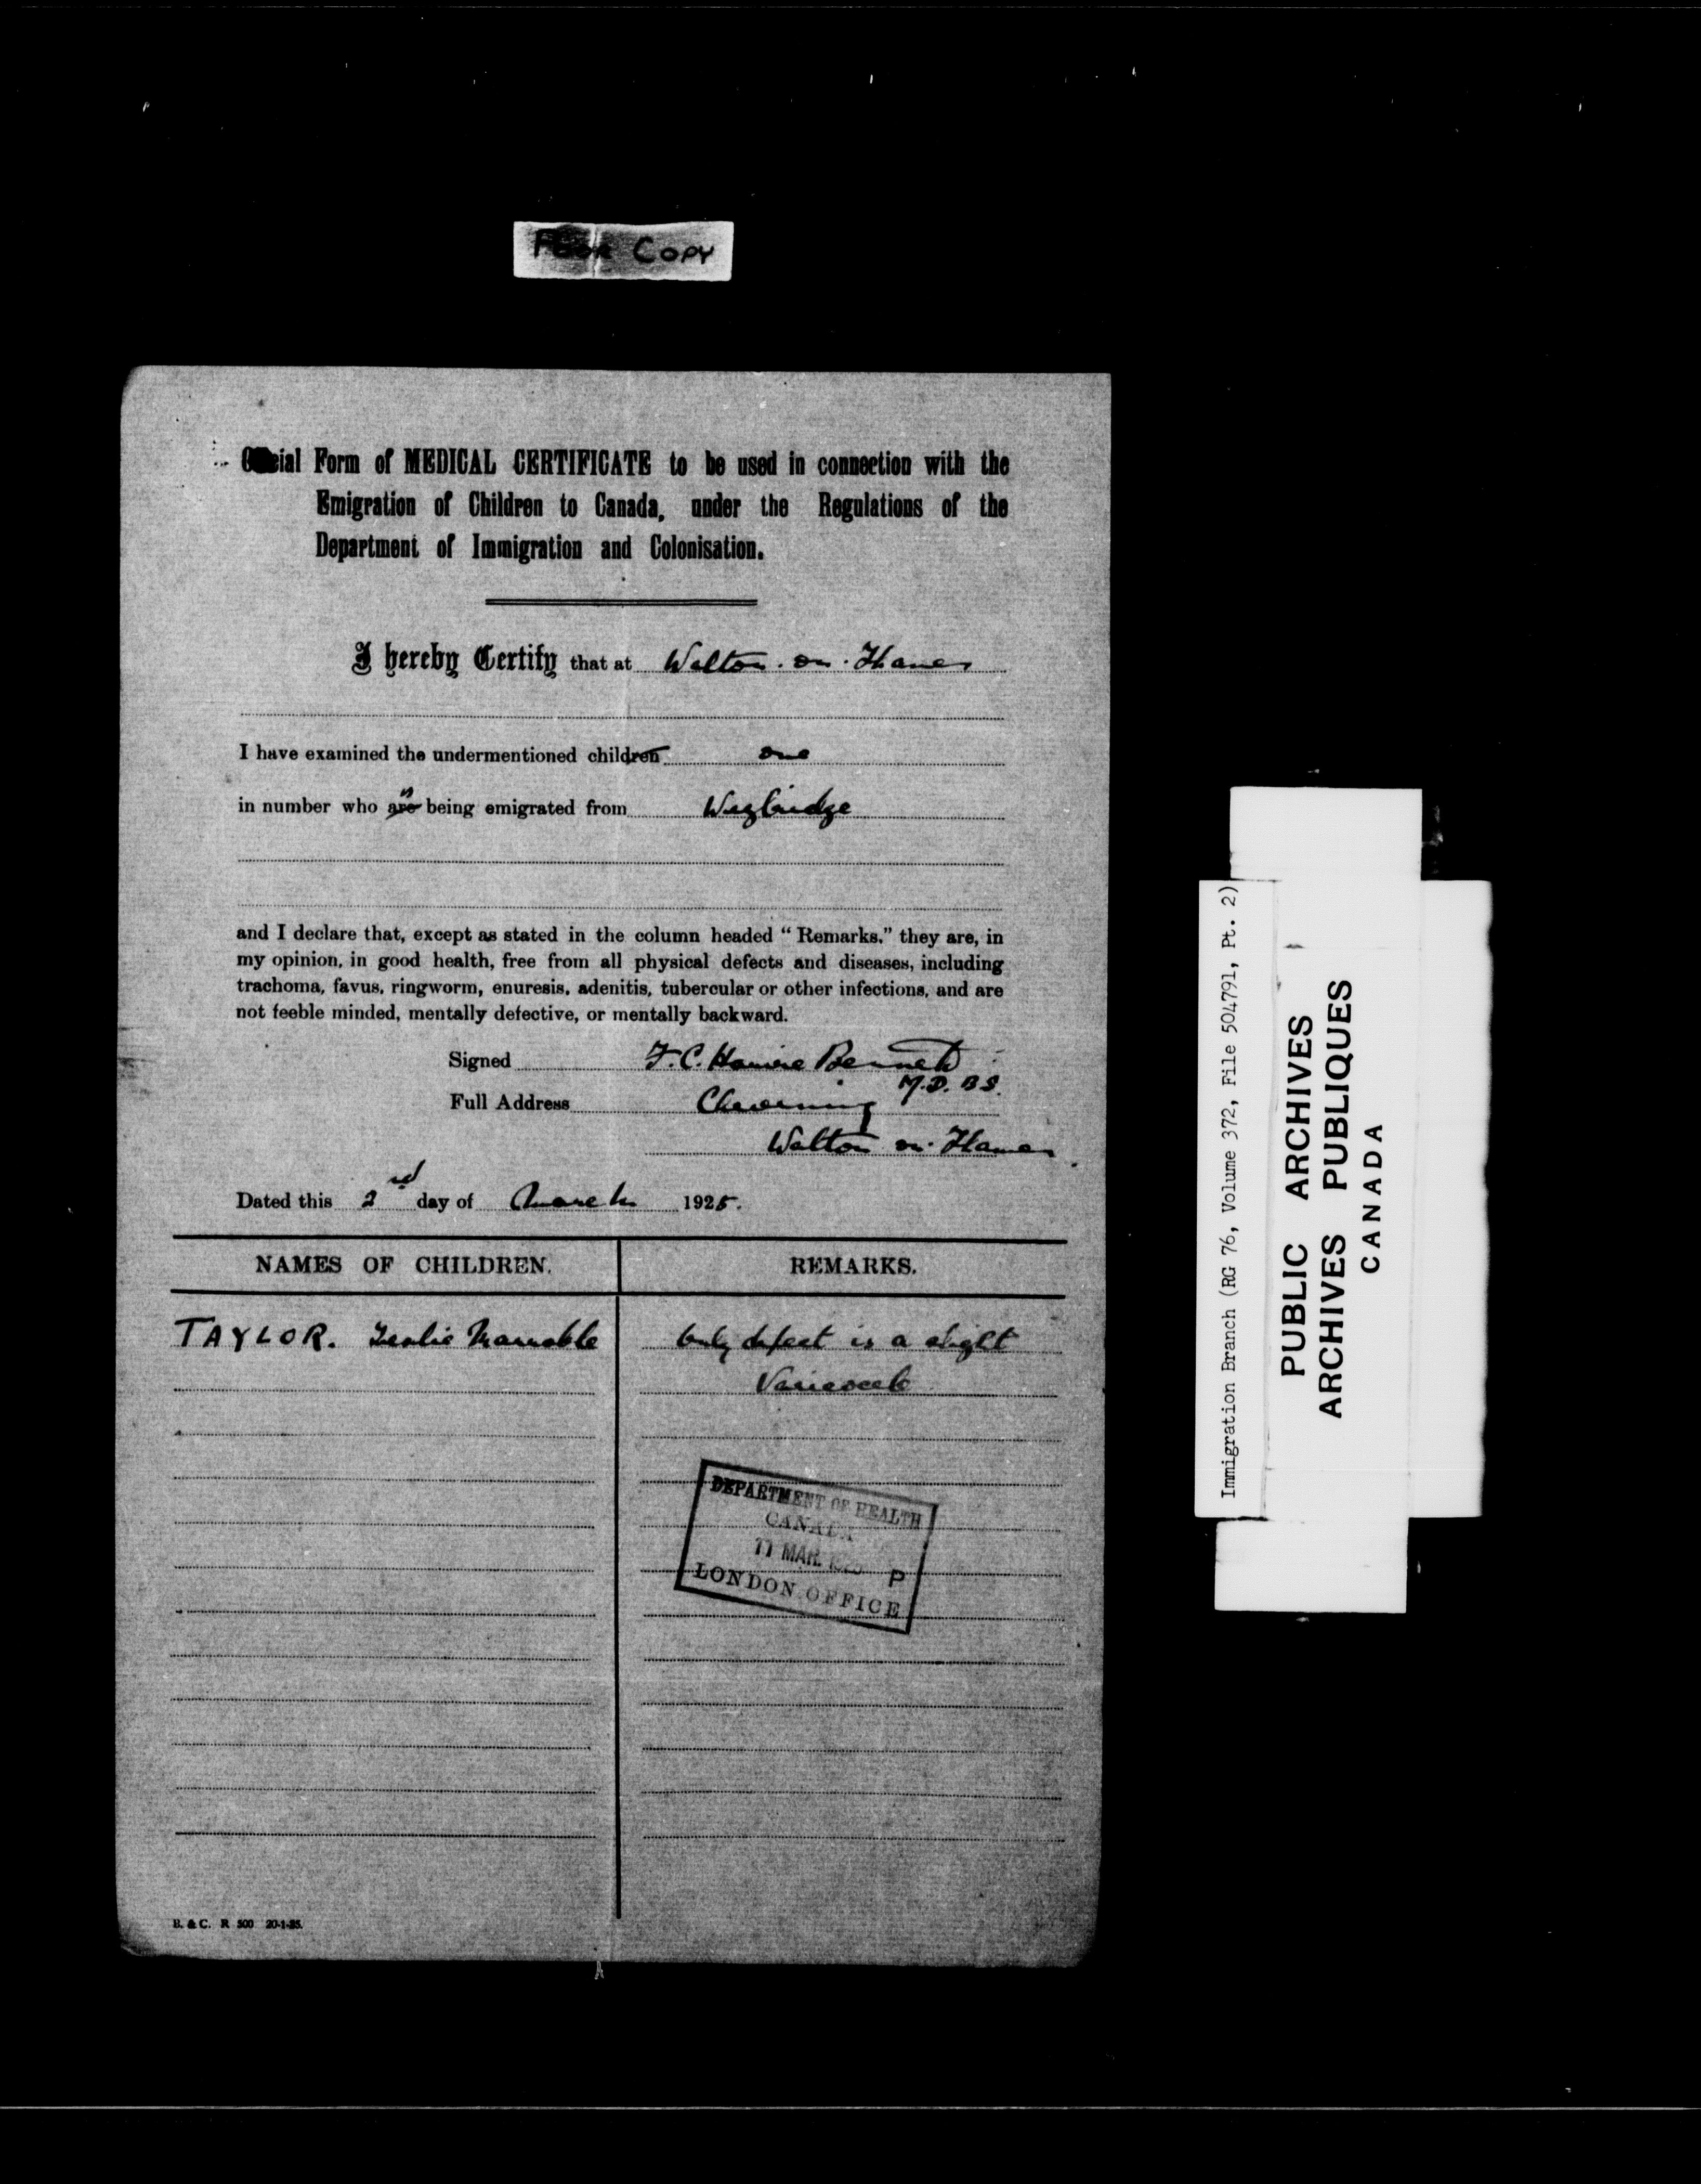 Poor Copy
Official Form of MEDICAL CERTIFICATE to be used in connection with the
Emigration of Children to Canada, under the Regulations of the
Department of Immigration and Colonisation.
I hereby Certify that at Walton. on. Thames
I have examined the undermentioned children one
in number who are is being emigrated from Weybridge
and I declare that, except as stated in the column headed “Remarks,” they are, in
my opinion, in good health, free from all physical defects and diseases, including
trachoma, favus, ringworm, enuresis, adenitis, tubercular or other infections, and are
not feeble minded, mentally defective, or mentally backward.
Signed F. C. Bennett
M.D. B.S.
Full Address Chevening
Walton on. Thames.
Dated this 2nd day of March 1925.
NAMES OF CHILDREN. REMARKS.
TAYLOR. Leslie only defect is a slight
Varicocele
DEPARTMENT OF HEALTH
CANADA
11 MAR. 1925 P
LONDON OFFICE
B. & C. R 500 20-1-25.
Immigration Branch (RG 76, Volume 372, File 504791, Pt. 2)
PUBLIC ARCHIVES
ARCHIVES PUBLIQUES
CANADA